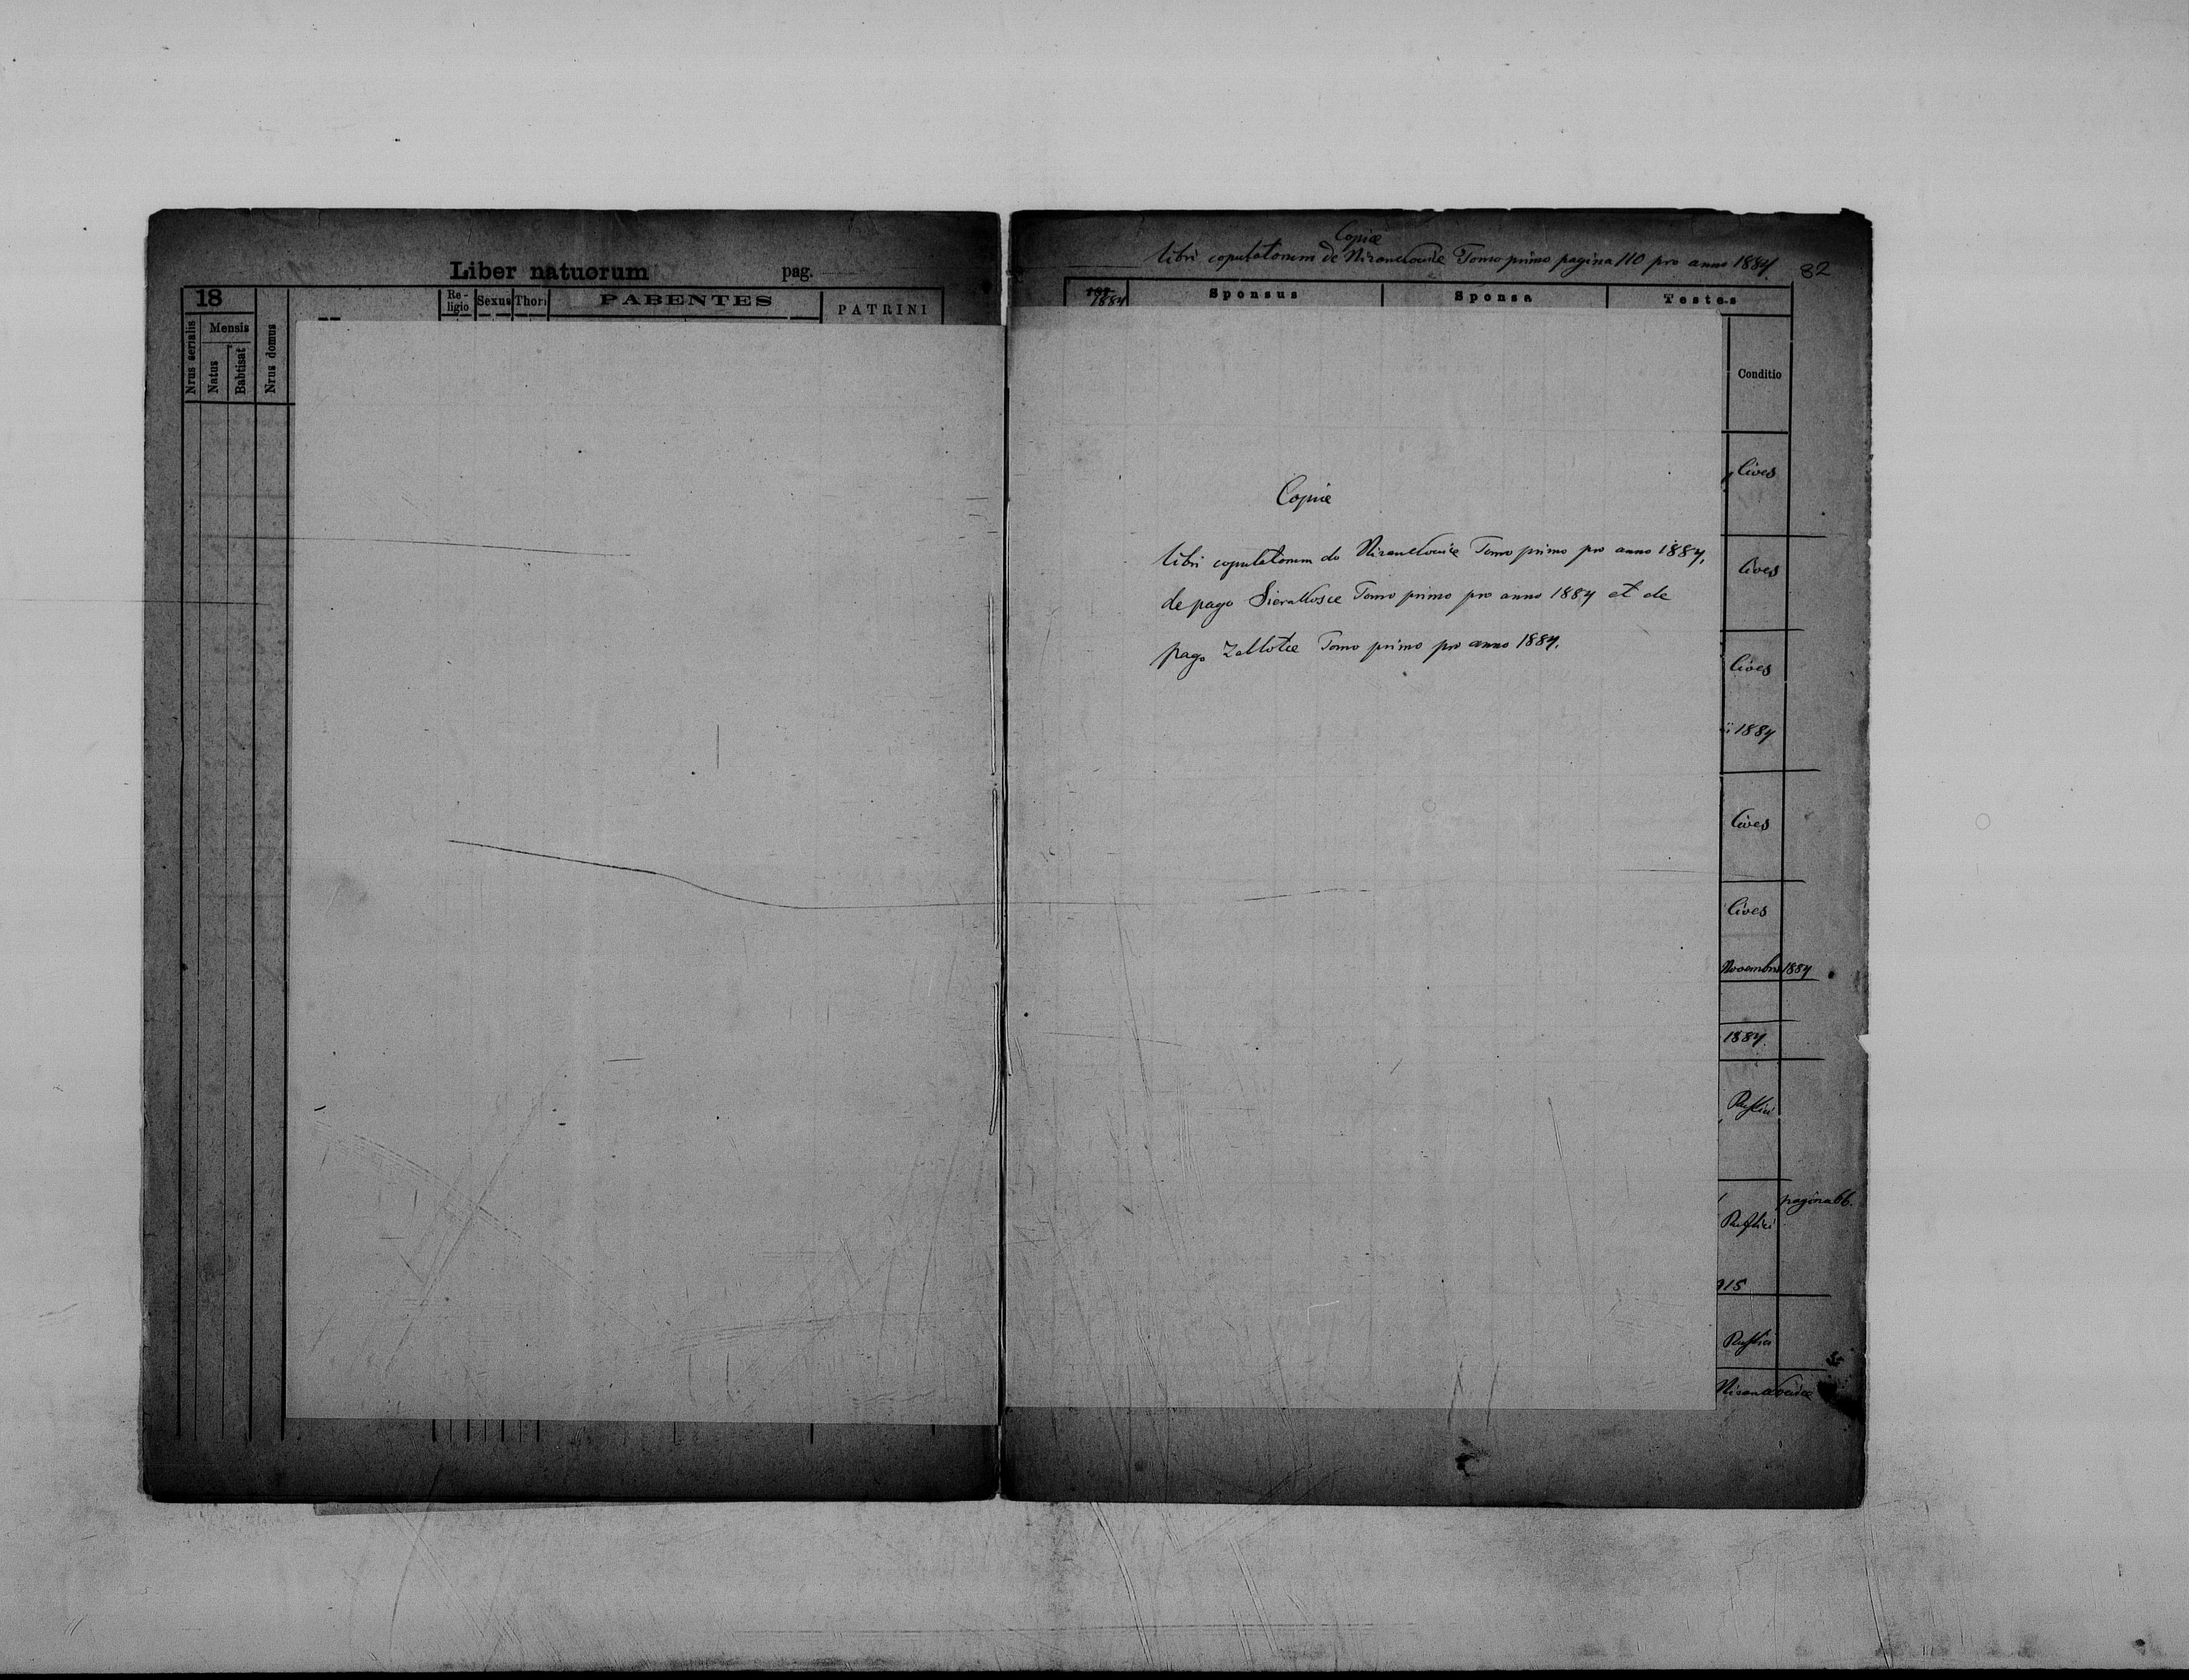 Liber natuorum pag.
18
Mensis
Nrus serialis
Natus
Babtisat
Nrus domus
Re-
ligio
Sexus
Thori
PABENTES
PATRINI
Copiæ
libri copulatorum de Nizankowice Tomo primo pagina 110 pro anno 1884.
82
1884
Sponsus
Sponsa
Testes
Conditio
Copiæ
libri copulatorum de Nizankowice Tomo primo pro anno 1884,
de pago Sierakosce Tomo primo pro anno 1884 et de
pago Zablotce Tomo primo pro anno 1884.
Cives
Cives
Cives
1884
Cives
Cives
Novembris 1884
1884.
Rustici
pagina 66.
Rustici
915
Rustici
Nizankowice